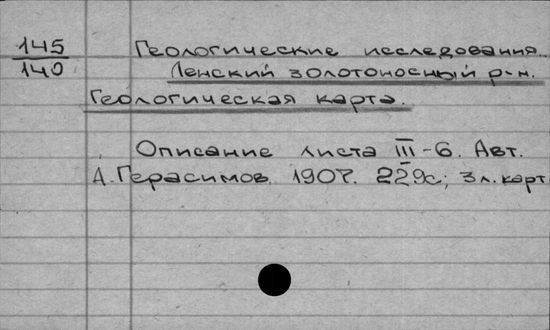 145
140
Геологические исследования.
Ленский золотоносный р-н.
Геологическая карта.
Описание листа III-6. Авт.
А. Герасимов. 1907. 229с; 3л. карт